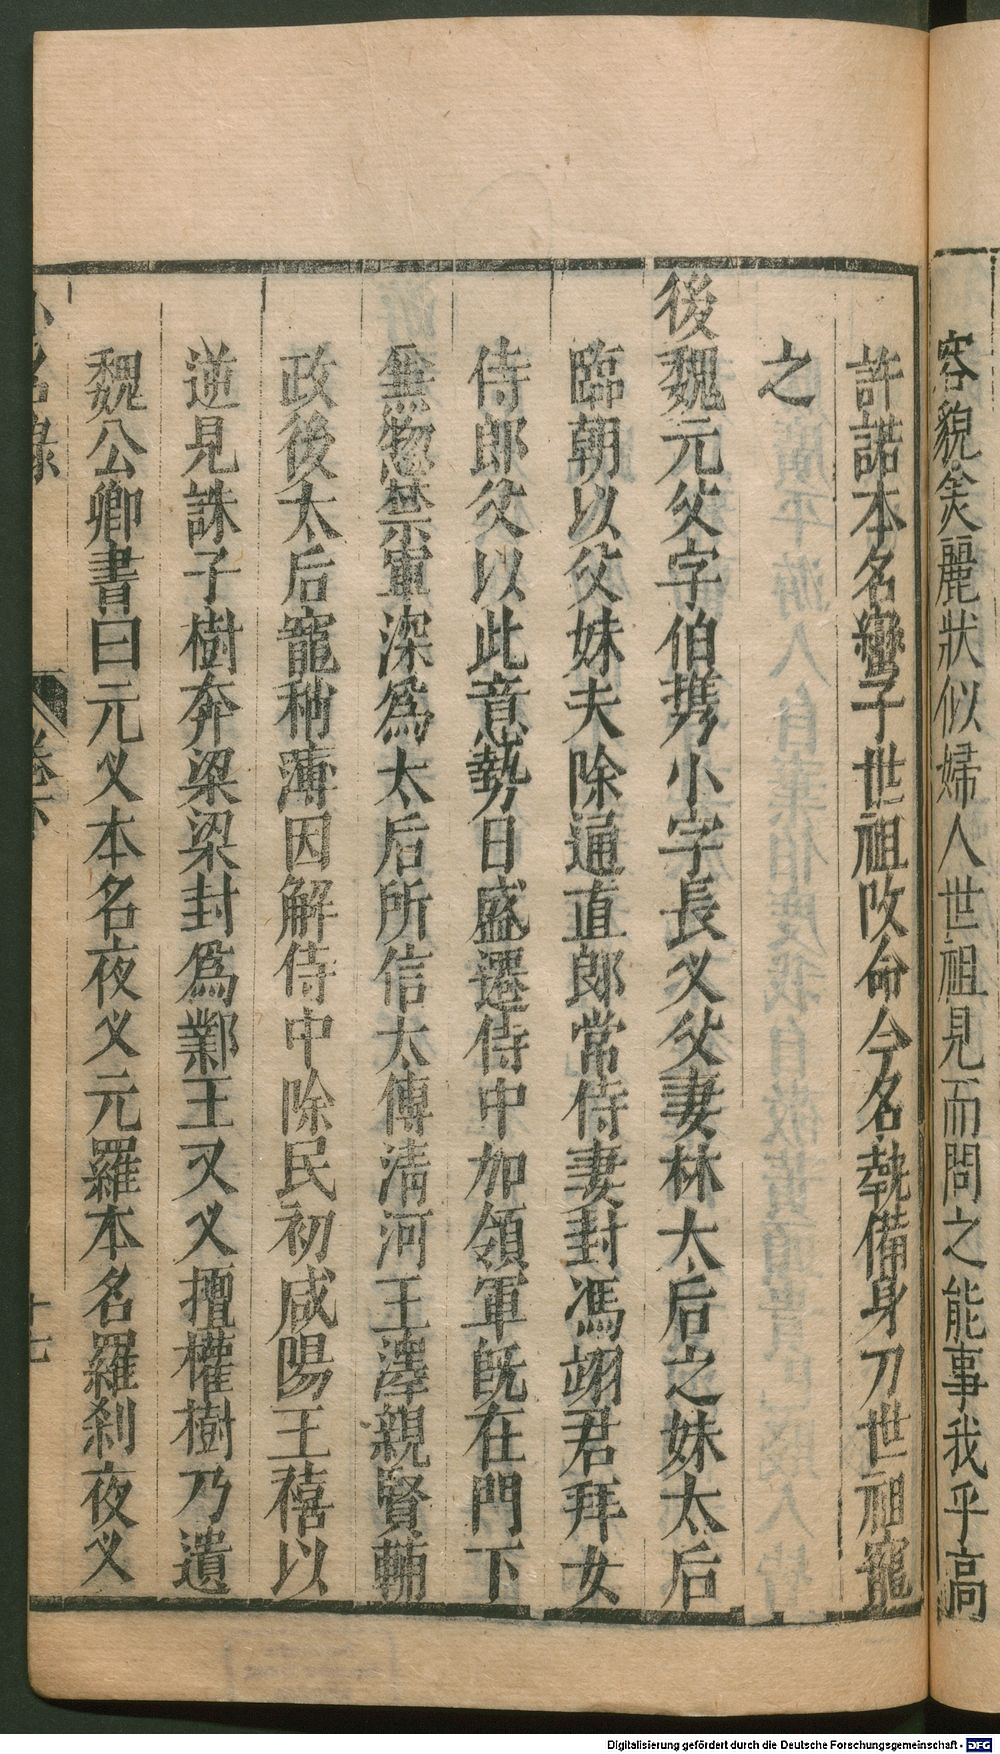 容貌美麗狀似婦人世祖見而問之能事我乎高
許諾本名蠻子世祖改命今名執備身刀世祖寵
之
後魏元㕛字伯㩦小字長义父妻林太后之妹太后
臨朝以㕛妹夫除通直郎常侍妻封馮翊君拜女
侍郎㕛以此意勢日盛遷侍中加領軍旣在門下
兼惣禁軍深爲太后所信太傳清河王澤親賢輔
政後太后寵稍薄因解侍中除民初咸陽王禧以
逆見誅子樹奔梁梁封爲鄴王又义擅權樹乃遺
魏公卿書曰元义本名夜义元羅本名羅刹夜义
小名錄
卷下
十七
Digitalisierung gefördert durch die Deutsche Forschungsgemeinschaft - DFG